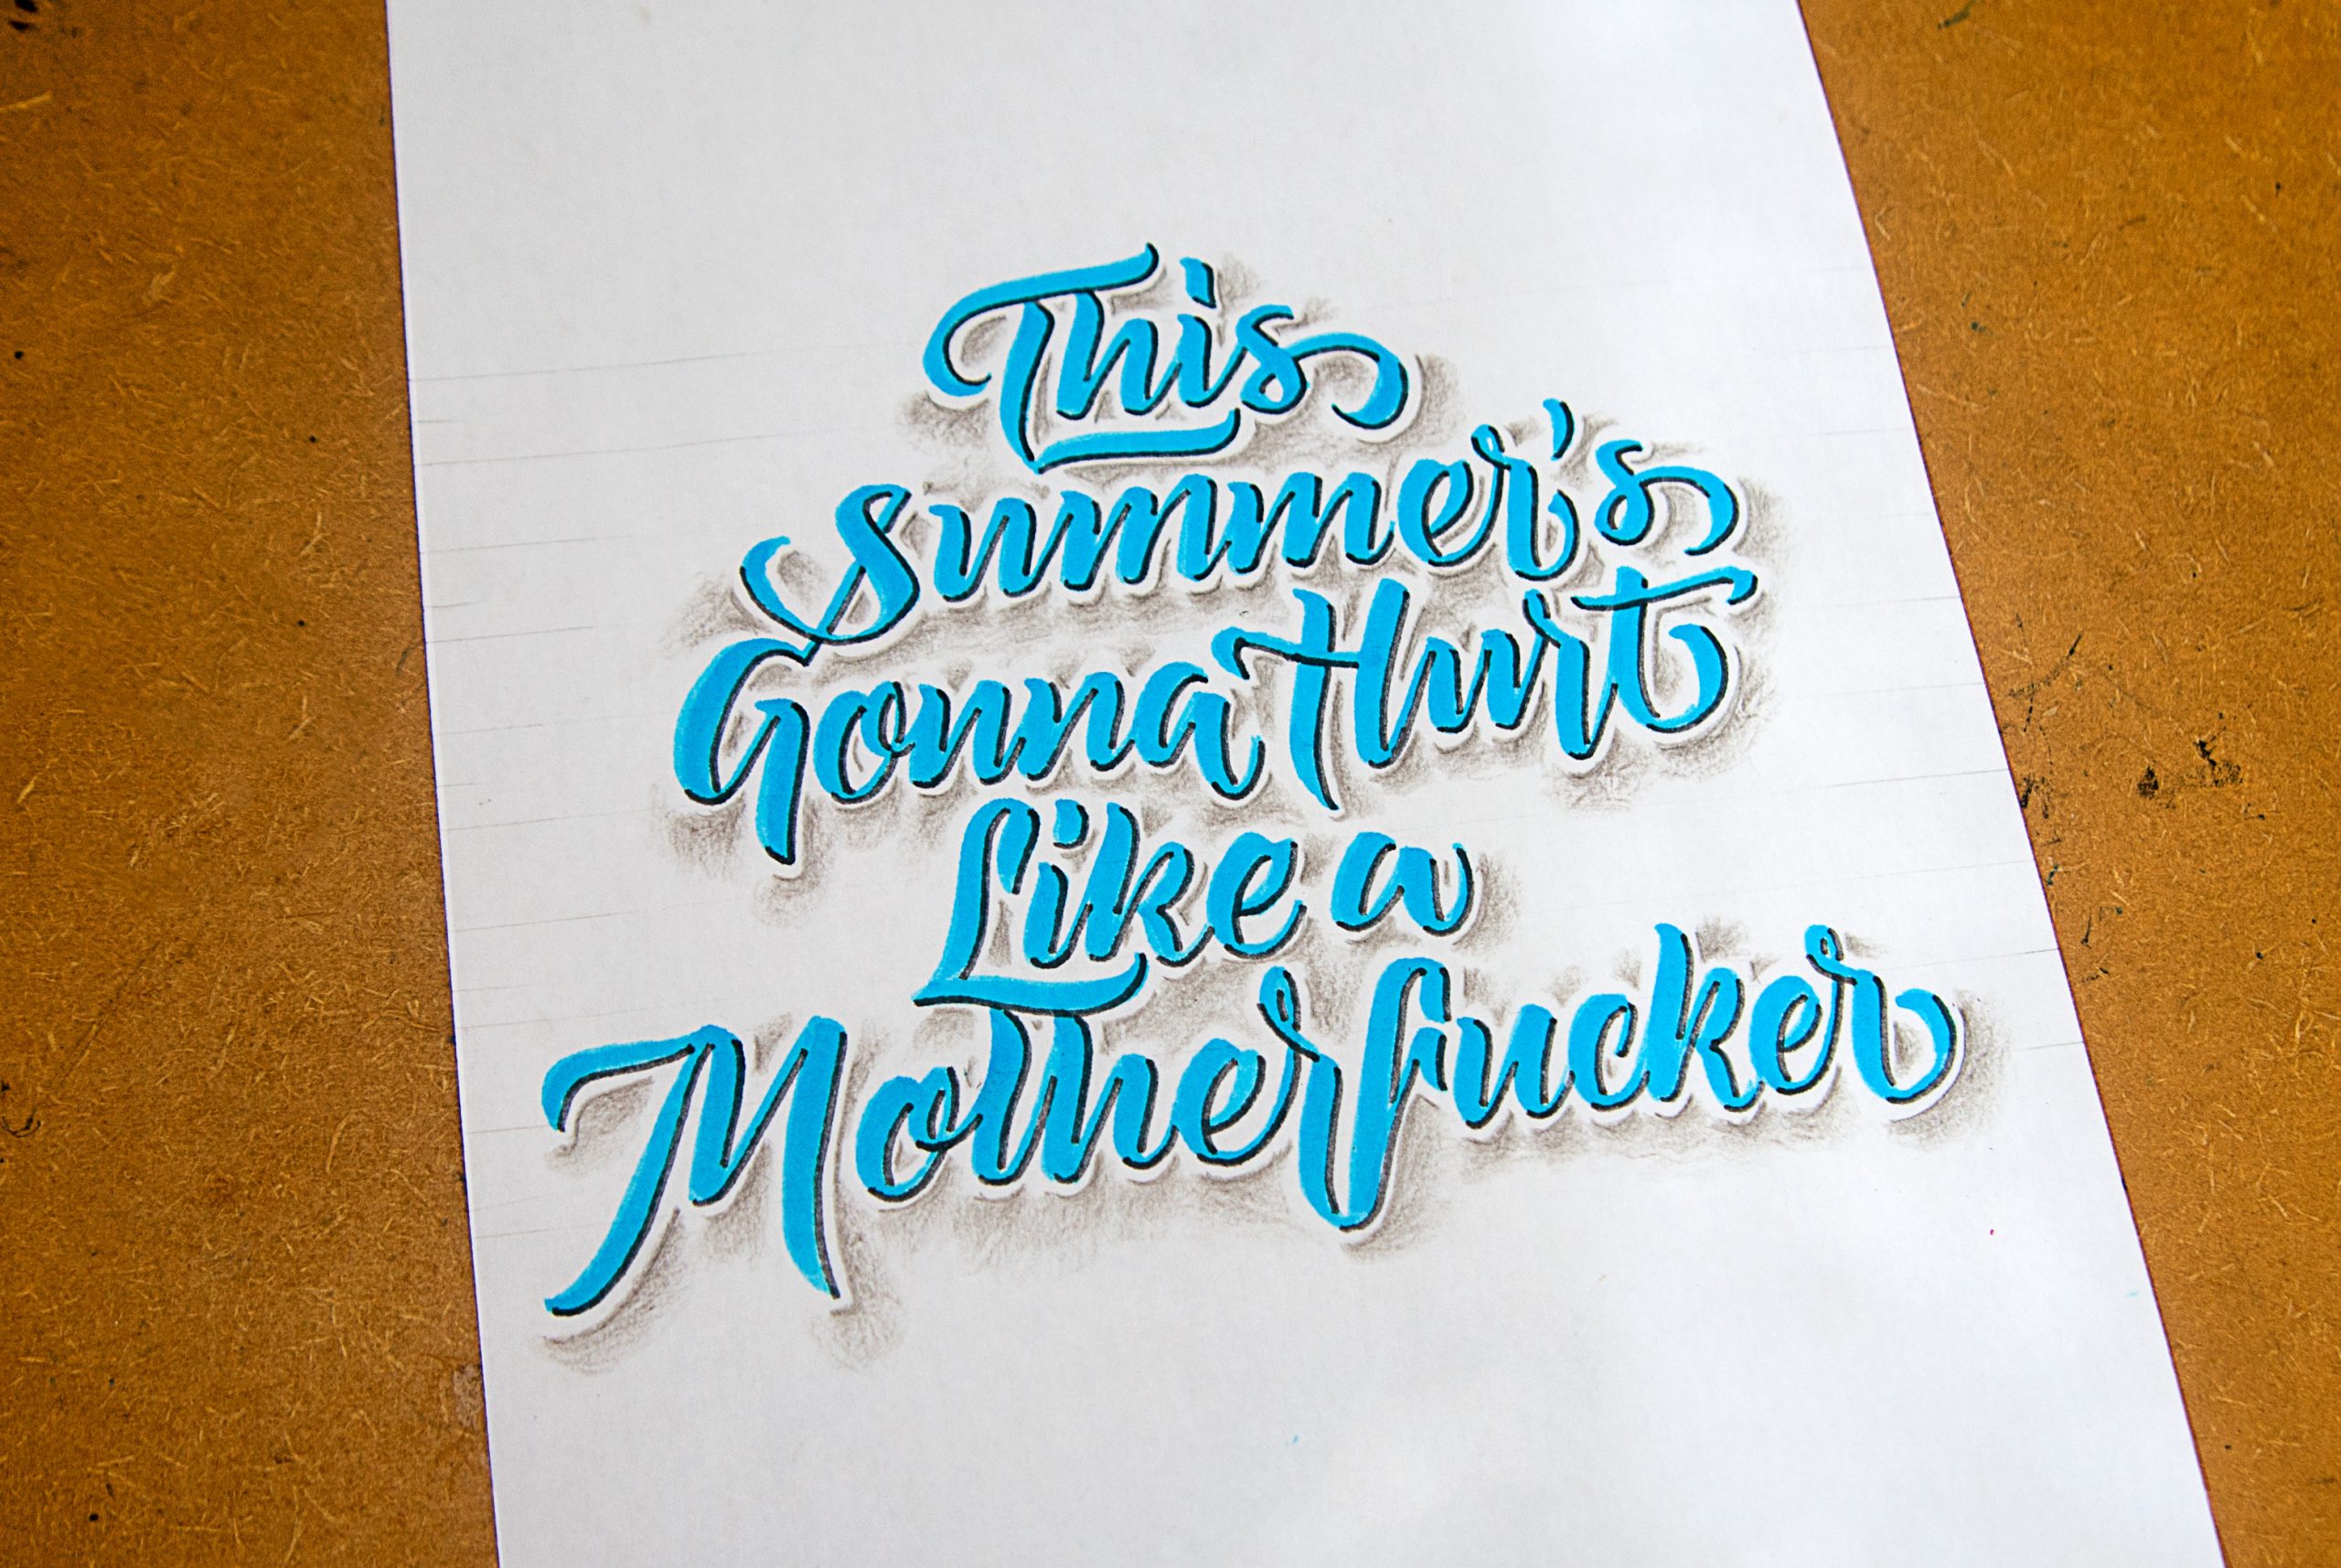 This
Summer's
Gonna Hurt
Like a
Motherfucker